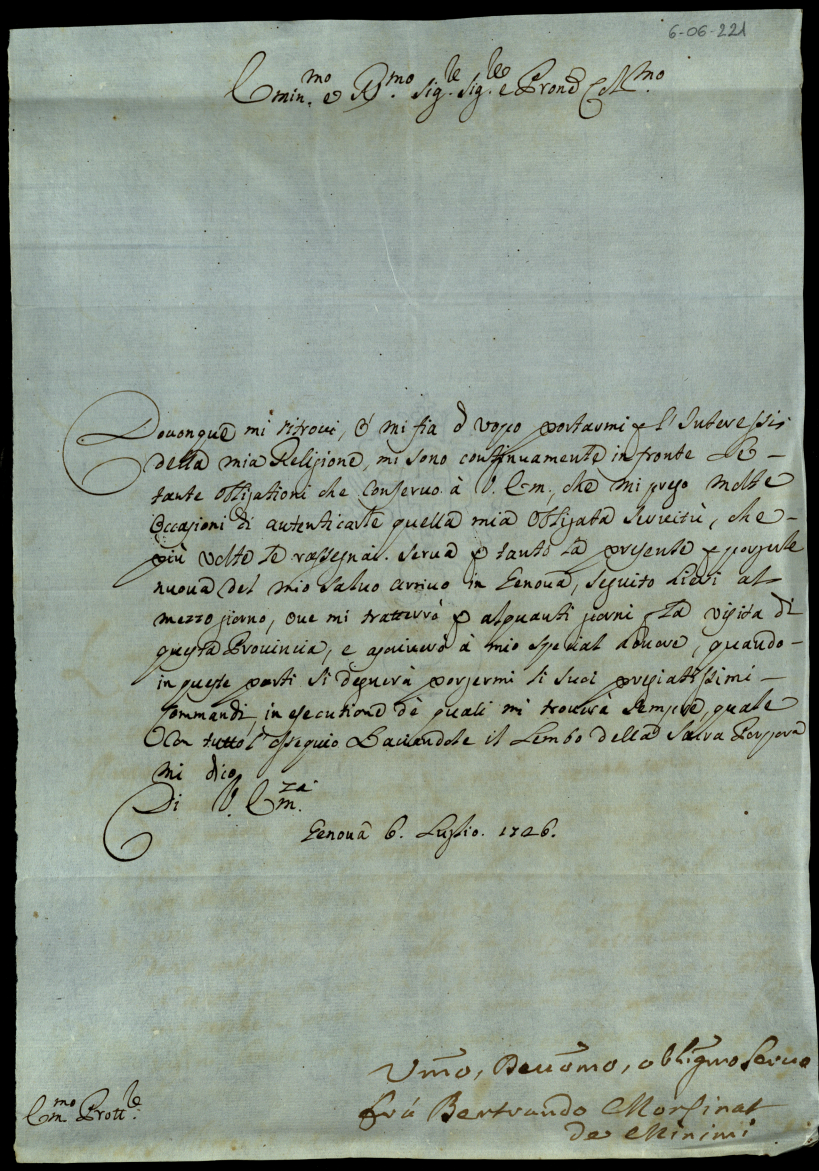 6-06-221
Emin.mo e R.mo Sig.le Sig.le e Prone Col.mo
Douonque mi ritroui, ò mi sia d'vopo portarmi p l'Interessi
della mia Religione, mi sono continuamente in fronte le
tante obligationi che conseruo à V. Em. che mi prego molte
occasioni di autenticarle quella mia obligata seruitù, che
più volte le rassegnai. Serua p tanto la presente p porgerle
nuoua del mio saluo arriuo in Genoua, seguito hieri al
mezzo giorno, oue mi tratterrò p alquanti giorni p la visita di
questa Prouincia, e ascriuerò à mio special honore, quando
in queste parti si degnerà porgermi li suoi pregiatissimi
commandi, in esecutione de quali mi trouerà sempre, quale
con tutto l'ossequio baciandole il Lembo della Sacra Porpora
mi dico
Di V. Em.za
Genoua 6. Luglio. 1726.
Vmo, Deuomo, obligmo Seruo
frá Bertrando Monsinat
de Minimi
Em.mo Prott.le